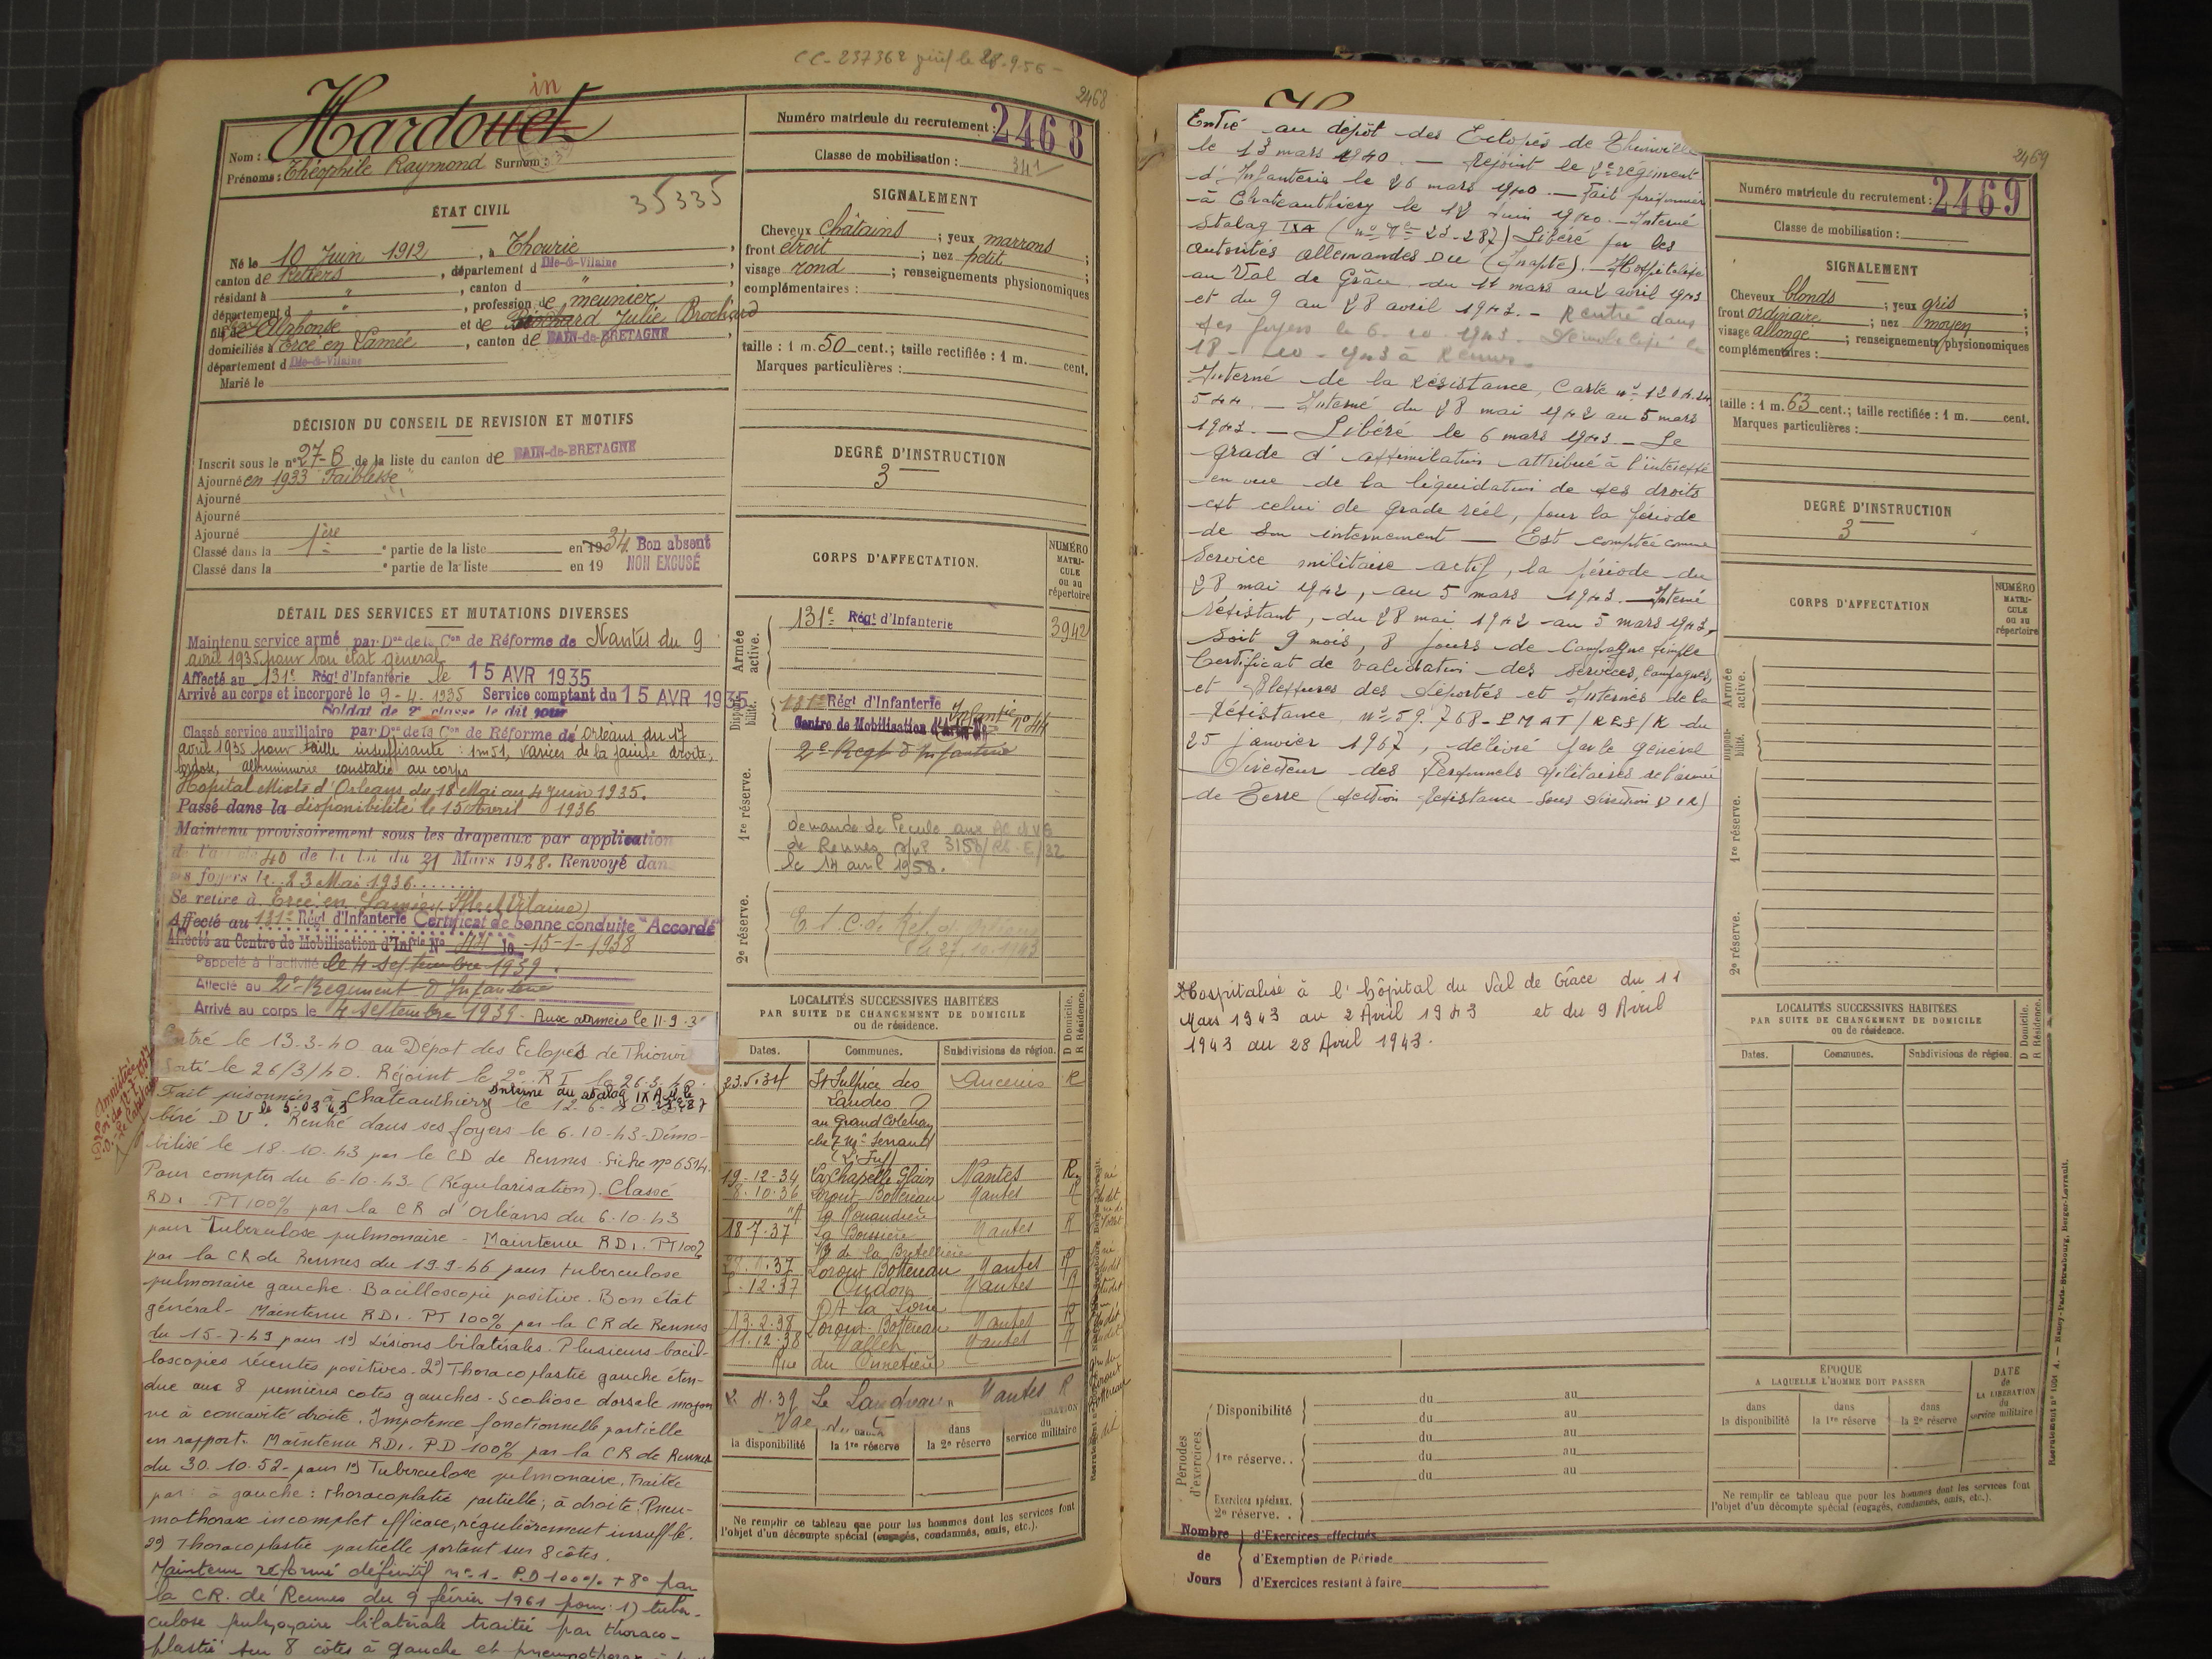 CC-237362
2468
in
Hardouet
Nom :
Prénoms : Théophile Raymond Surnom :
Numéro matricule du recrutement : 2468
Classe de mobilisation :
341
35335
ÉTAT CIVIL
Né le 10 Juin 1912, à Thourie,
canton de Retiers, département d Ille-&-Vilaine
résidant à " , canton d "
département d , profession de meunier
fils de Alphonse et de Brochard Julie Brochard
domiciliés à Ercé en Lamée, canton de BAIN-de-BRETAGNE
département d Ille-&-Vilaine
Marié le
DÉCISION DU CONSEIL DE REVISION ET MOTIFS
Inscrit sous le n° 27-B de la liste du canton de BAIN-de-BRETAGNE
Ajourné en 1933 "Faiblesse"
Ajourné
Ajourné
Ajourné
Classé dans la 1ère partie de la liste en 1934 Bon absent
Classé dans la ° partie de la liste en 19 NON EXCUSÉ
DÉTAIL DES SERVICES ET MUTATIONS DIVERSES
Maintenu service armé par Don de la Con de Réforme de Nantes du 9
avril 1935 pour bon état général
Affecté au 131e Régt d'Infanterie le 15 AVR 1935
Arrivé au corps et incorporé le 9-4-1935 Service comptant du 15 AVR 1935
Soldat de 2e classe le dit jour
Classé service auxiliaire par Don de la Con de Réforme de Orléans du 17
avril 1935 pour taille insuffisante : 1m51, varices de la jambe droite,
lordose, albuminurie constatée au corps
Hopital Mixte d'Orléans du 18 Mai au 4 juin 1935.
Passé dans la disponibilité le 15 Avril 1936
Maintenu provisoirement sous les drapeaux par application
de l'article 40 de la loi du 31 Mars 1928. Renvoyé dans
ses foyers le 23 Mai 1936
Se retire à Ercé en Lamée (Ille et Vilaine)
Affecté au 131e Régt d'Infanterie Certificat de bonne conduite "Accordé"
Affecté au Centre de Mobilisation d'Infrie No 44 le 15-1-1938
Rappelé à l'activité le 4 septembre 1939.
Affecté au 2e Régiment d'Infanterie
Arrivé au corps le 4 septembre 1939 - Aux armées le 11-9-3
Entré le 13-3-40 au Dépot des Eclopés de Thionvi
Sorti le 26/3/40. Rejoint le 2e RI le 26-3-40.
Fait prisonnier à Chateauthierry le 12-6-40 Interné au stalag IX A Mle 23287
libéré DU le 5-03 43. Rentré dans ses foyers le 6-10-43 - Démo-
bilisé le 18-10-43 par le CD de Rennes. Fiche n° 6514.
Pour compter du 6-10-43 (Régularisation). Classé
RD1. PT 100% par la CR d'Orléans du 6-10-43
pour Tuberculose pulmonaire - Maintenu RD1. PT 100%
par la CR de Rennes du 19-9-46 pour tuberculose
pulmonaire gauche. Bacilloscopie positive. Bon état
général - Maintenu RD1. PT 100% par la CR de Rennes
du 15-7-49 pour 1°) Lésions bilatérales. Plusieurs bacil-
loscopies récentes positives. 2°) Thoracoplastie gauche éten-
due aux 8 premières cotes gauches. Scoliose dorsale moyen
ne à concavité droite. Impotence fonctionnelle partielle
en rapport. Maintenu RD1. PD 100% par la CR de Rennes
du 30-10-52 - pour 1°) Tuberculose pulmonaire. Traitée
par : à gauche : thoracoplatie partielle ; à droite : Pneu-
mothorax incomplet efficace, régulièrement insufflé.
2°) Thoracoplastie partielle portant sur 8 côtes.
Maintenu réformé définitif n° 1 - PD 100% + 8° par
la CR. de Rennes du 9 février 1961 pour : 1) tuber-
culose pulmonaire bilatérale traitée par thoraco-
plastie sur 8 côtes à gauche et pneumothorax
SIGNALEMENT
Cheveux châtains ; yeux marrons ;
front étroit ; nez petit ;
visage rond ; renseignements physionomiques
complémentaires :
taille : 1 m. 50 cent.; taille rectifiée : 1 m. cent.
Marques particulières :
DEGRÉ D'INSTRUCTION
3
CORPS D'AFFECTATION.
NUMÉRO MATRI-CULE ou au répertoire
Armée active.
131e Régt d'Infanterie 3942
Disponi-bilité.
131e Régt d'Infanterie
Centre de Mobilisation Infanterie n° 44
2e Regt d'Infanterie
1re réserve.
demande de Pécule aux AC et VG
de Rennes 3158/RG-E/32
le 14 avril 1958.
2e réserve.
LOCALITÉS SUCCESSIVES HABITÉES
PAR SUITE DE CHANGEMENT DE DOMICILE
ou de résidence.
D Domicile.
R Résidence.
Dates. Communes. Subdivisions de région.
23.5.34 St Sulpice des Landes Ancenis R
au Grand
19-12-34 La Chapelle Glain Nantes R
8.10.36 Loroux-Bottereau Nantes R
18-7-37 La Boissière Nantes R
Loroux Bottereau Nantes R
12.37 Oudon Nantes R
13.2.38 Loroux-Bottereau Nantes R
11.12.38 Vallet Nantes R
Rue du Cimetière
4.39 Le Landreau Nantes R
dans la disponibilité
la 1re réserve
dans la 2e réserve
du service militaire
Ne remplir ce tableau que pour les hommes dont les services font
l'objet d'un décompte spécial (engagés, condamnés, omis, etc.).
Entré au dépôt des Eclopés de Thionville
le 13 mars 1940. — Rejoint le 2e régiment
d'Infanterie le 26 mars 1940. — Fait prisonnier
à Chateauthiery le 12 Juin 1940. — Interné
Stalag IXA (no Mle 23-287) Libéré par les
autorités allemandes DU (Inapte). Hospitalisé
au Val de Grâce du 11 mars au 2 avril 1943
et du 9 au 28 avril 1943. — Rentré dans
ses foyers le 6-10-1943. Démobilisé le
18-10-943 à Rennes.
Interné de la Résistance, Carte n° 1204.24.
544. — Interné du 28 mai 1942 au 5 mars
1943. — Libéré le 6 mars 1943. — Le
grade d'assimilation attribué à l'intéressé
en vue de la liquidation de ses droits
est celui de grade réel, pour la période
de son internement — Est comptée comme
Service militaire actif, la période du
28 mai 1942, au 5 mars 1943. — Interné
résistant, du 28 mai 1942 au 5 mars 1943,
soit 9 mois, 8 jours de Campagne simple
Certificat de validation des services, campagnes,
et Blessures des Déportés et Internés de la
Résistance n° 59.768-PMAT/RES/K du
25 janvier 1967, délivré par le général
Directeur des Personnels Militaires de l'armée
de Terre (section Résistance - Sous Direction
Hospitalisé à l'hôpital du Val de Grâce du 11
Mars 1943 au 2 Avril 1943 et du 9 Avril
1943 au 28 Avril 1943.
Périodes d'exercices.
Disponibilité du au
du au
1re réserve.. du au
du au
du au
Exercices spéciaux.
2e réserve..
Nombre de Jours
d'Exercices effectués
d'Exemption de Période
d'Exercices restant à faire
2469
Numéro matricule du recrutement : 2469
Classe de mobilisation :
SIGNALEMENT
Cheveux blonds ; yeux gris ;
front ordinaire ; nez moyen ;
visage allongé ; renseignements physionomiques
complémentaires :
taille : 1 m. 63 cent.; taille rectifiée : 1 m. cent.
Marques particulières :
DEGRÉ D'INSTRUCTION
3
CORPS D'AFFECTATION
NUMÉRO MATRI-CULE ou au répertoire
Armée active.
Disponi-bilité.
1re réserve.
2e réserve.
LOCALITÉS SUCCESSIVES HABITÉES
PAR SUITE DE CHANGEMENT DE DOMICILE
ou de résidence.
D Domicile.
R Résidence.
Dates. Communes. Subdivisions de région.
ÉPOQUE
A LAQUELLE L'HOMME DOIT PASSER
DATE de LA LIBÉRATION du service militaire
dans la disponibilité
dans la 1re réserve
dans la 2e réserve
Ne remplir ce tableau que pour les hommes dont les services font
l'objet d'un décompte spécial (engagés, condamnés, omis, etc.).
Recrutement n° 1051 A. — Nancy-Paris-Strasbourg, Berger-Levrault.